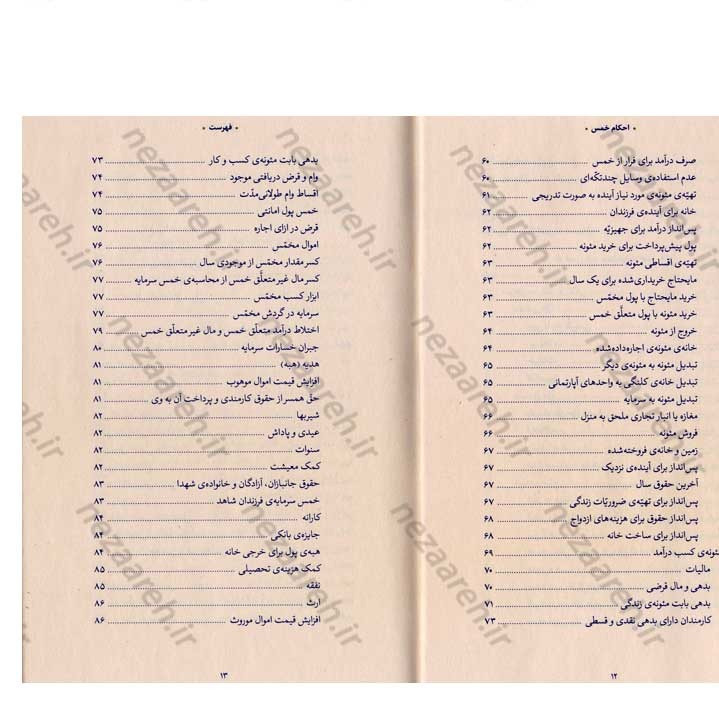 • احکام خمس •
صرف درآمد برای فرار از خمس ۶۰
عدم استفاده‌ی وسایل چندتکّه‌ای ۶۰
تهیّه‌ی مئونه‌ی مورد نیاز آینده به صورت تدریجی ۶۱
خانه برای آینده‌ی فرزندان ۶۲
پس‌انداز درآمد برای جهیزیّه ۶۲
پول پیش‌پرداخت برای خرید مئونه ۶۲
تهیّه‌ی اقساطی مئونه ۶۳
مایحتاج خریداری‌شده برای یک سال ۶۳
خرید مایحتاج با پول مخمّس ۶۳
خرید مئونه با پول متعلّق خمس ۶۳
خروج از مئونه ۶۴
خانه‌ی مئونه‌ی اجاره‌داده‌شده ۶۴
تبدیل مئونه به مئونه‌ی دیگر ۶۵
تبدیل خانه‌ی کلنگی به واحدهای آپارتمانی ۶۵
تبدیل مئونه به سرمایه ۶۵
مغازه یا انبار تجاری ملحق به منزل ۶۶
فروش مئونه ۶۶
زمین و خانه‌ی فروخته‌شده ۶۷
پس‌انداز برای آینده‌ی نزدیک ۶۷
آخرین حقوق سال ۶۷
پس‌انداز برای تهیّه‌ی ضروریّات زندگی ۶۷
پس‌انداز حقوق برای هزینه‌های ازدواج ۶۸
پس‌انداز برای ساخت خانه ۶۸
مئونه‌ی کسب درآمد ۶۹
مالیات ۷۰
بدهی و مال قرضی ۷۰
بدهی بابت مئونه‌ی زندگی ۷۱
کارمندان دارای بدهی نقدی و قسطی ۷۳
۱۲
• فهرست •
بدهی بابت مئونه‌ی کسب و کار ۷۳
وام و قرض دریافتی موجود ۷۴
اقساط وام طولانی‌مدّت ۷۴
خمس پول امانتی ۷۵
قرض در ازای اجاره ۷۵
اموال مخمّس ۷۶
کسر مقدار مخمّس از موجودی سال ۷۶
کسر مال غیر متعلَّق خمس از محاسبه‌ی خمس سرمایه ۷۷
ابزار کسب مخمّس ۷۷
سرمایه در گردش مخمّس ۷۷
اختلاط درآمد متعلّق خمس و مال غیر متعلّق خمس ۷۹
جبران خسارات سرمایه ۸۰
هدیه (هبه) ۸۱
افزایش قیمت اموال موهوب ۸۱
حقّ همسر از حقوق کارمندی و پرداخت آن به وی ۸۱
شیربها ۸۲
عیدی و پاداش ۸۲
سنوات ۸۲
کمک معیشت ۸۲
حقوق جانبازان، آزادگان و خانواده‌ی شهدا ۸۳
خمس سرمایه‌ی فرزندان شاهد ۸۳
کارانه ۸۴
جایزه‌ی بانکی ۸۴
هبه‌ی پول برای خرجی خانه ۸۴
کمک هزینه‌ی تحصیلی ۸۵
نفقه ۸۵
ارث ۸۶
افزایش قیمت اموال موروث ۸۶
۱۳
nezaareh.ir
nezaareh.ir
nezaareh.ir
nezaareh.ir
nezaareh.ir
nezaareh.ir
nezaareh.ir
nezaareh.ir
nezaareh.ir